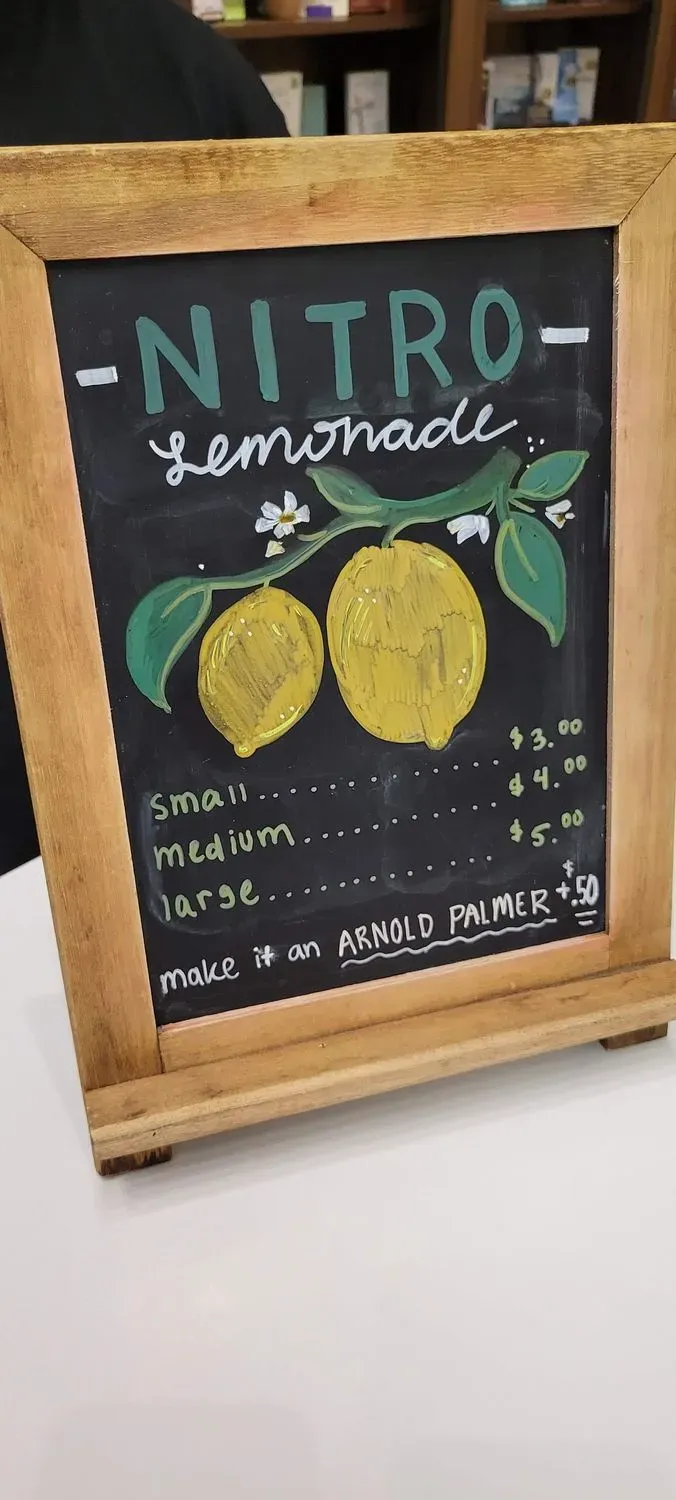 -NITRO-
Lemonade
small............. $3.00
medium............ $4.00
large.............. $5.00
make it an ARNOLD PALMER +$.50